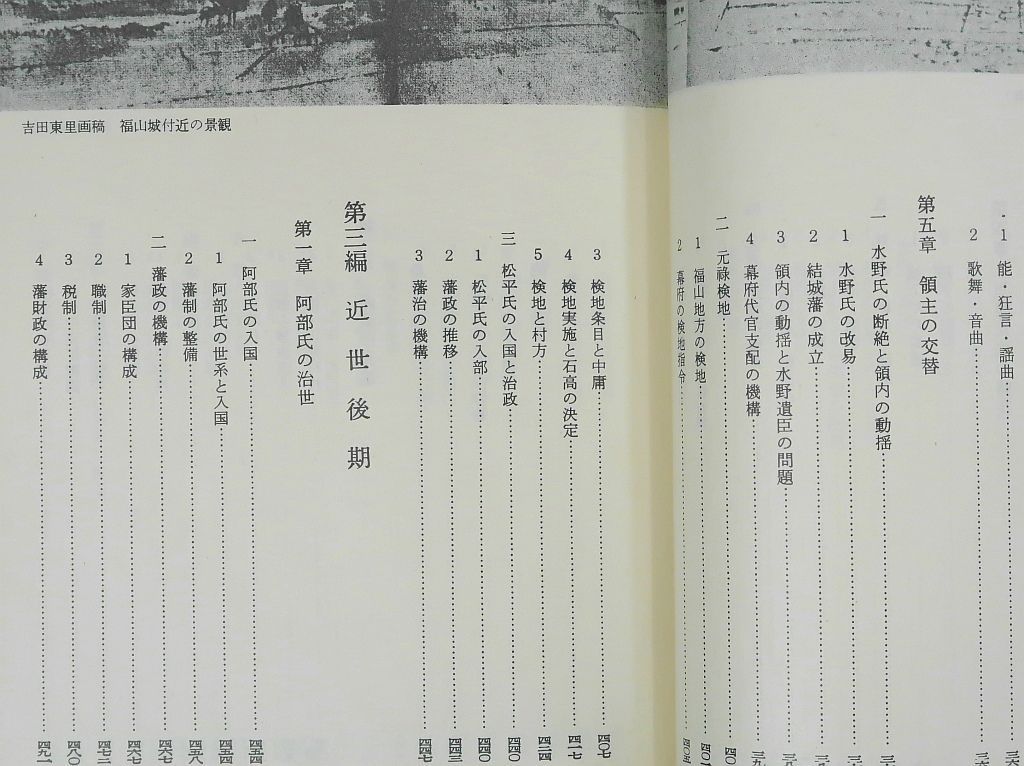 ・1 能・狂言・謡曲
2 歌舞・音曲
第五章 領主の交替
一 水野氏の断絶と領内の動揺
1 水野氏の改易
2 結城藩の成立
3 領内の動揺と水野遺臣の問題
4 幕府代官支配の機構
二 元禄検地
1 福山地方の検地
2 幕府の検地指令
吉田東里画稿 福山城付近の景観
3 検地条目と中庸 四〇七
4 検地実施と石高の決定 四一七
5 検地と村方 四二四
三 松平氏の入国と治政 四四〇
1 松平氏の入部 四四〇
2 藩政の推移 四四三
3 藩治の機構 四四七
第三編 近世後期
第一章 阿部氏の治世
一 阿部氏の入国 四五四
1 阿部氏の世系と入国 四五四
2 藩制の整備 四五八
二 藩政の機構 四六七
1 家臣団の構成 四六七
2 職制 四七二
3 税制 四八〇
4 藩財政の構成 四九一